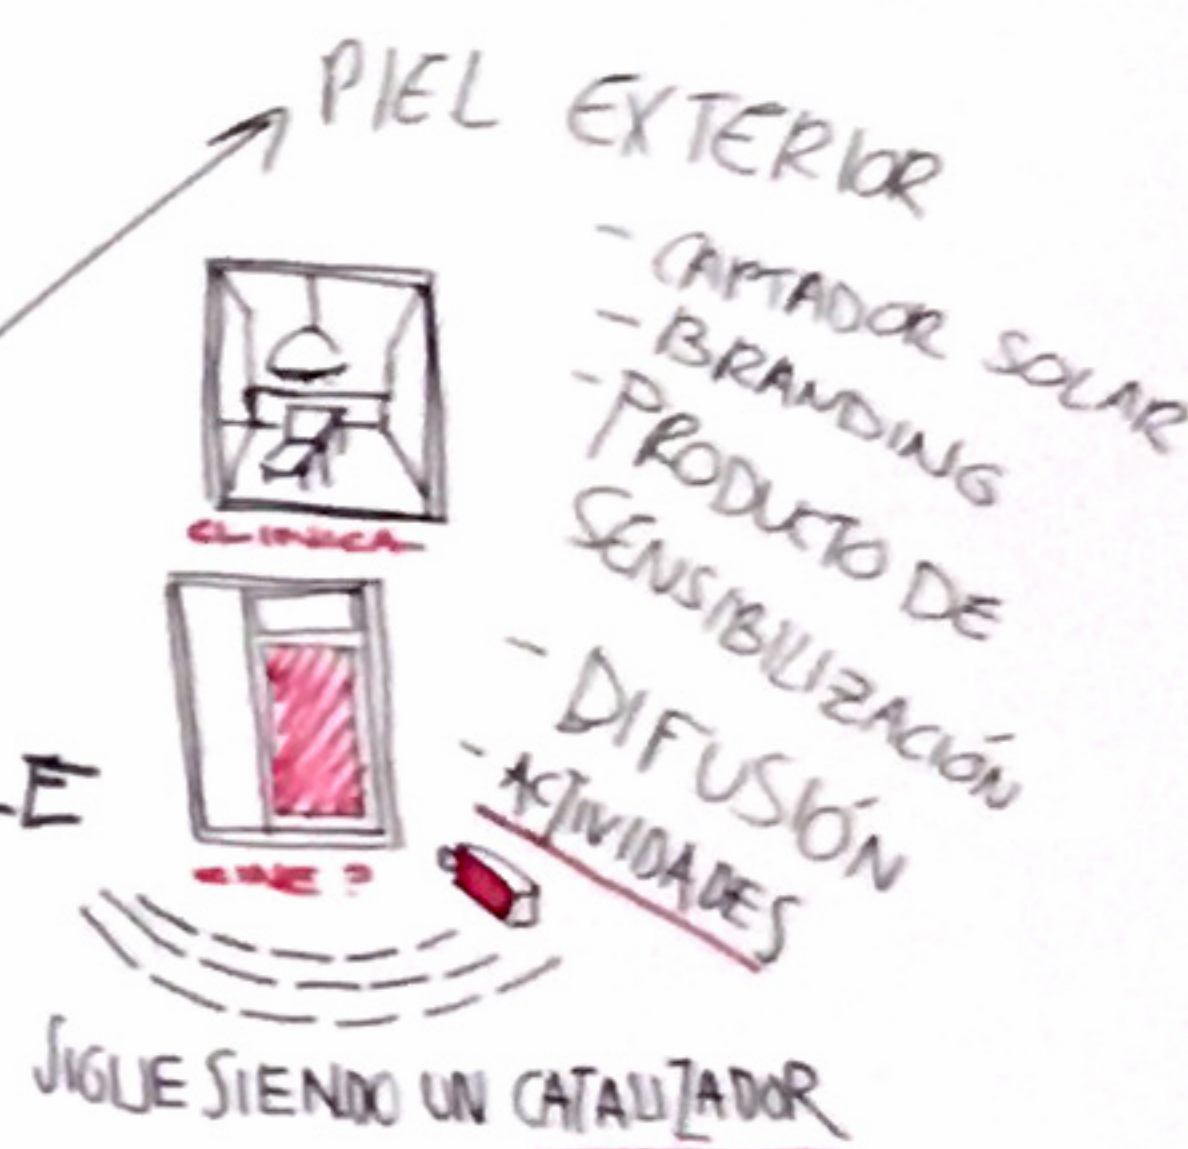 PIEL EXTERIOR
- CAPTADOR SOLAR
- BRANDING
- PRODUCTO DE
SENSIBILIZACIÓN
- DIFUSIÓN
- ACTIVIDADES
CLINICA
CINE?
E
SIGUE SIENDO UN CATALIZADOR